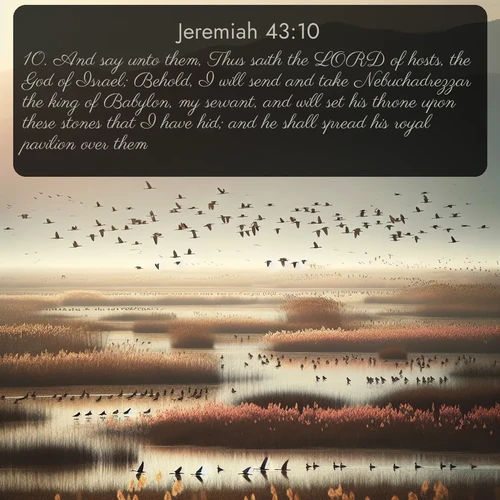 Jeremiah 43:10
10. And say unto them, Thus saith the LORD of hosts, the
God of Israel; Behold, I will send and take Nebuchadrezzar
the king of Babylon, my servant, and will set his throne upon
these stones that I have hid; and he shall spread his royal
pavilion over them